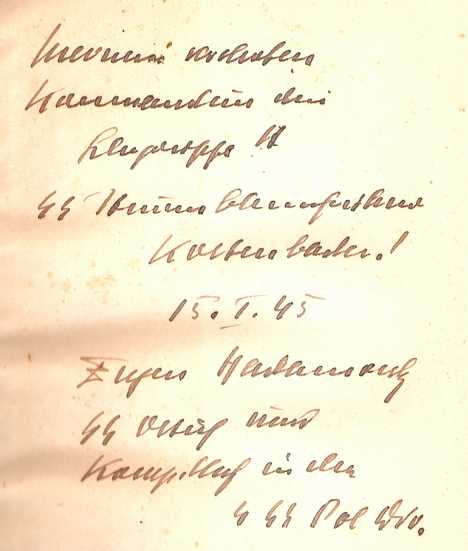 Meinem verehrten
Kommandeur der
Lehrgruppe
SS Sturmbannführer
15. I. 45
Eugen Hadamovsky
SS Ostuf und
Komp. Chef in der
4 SS Pol Div.